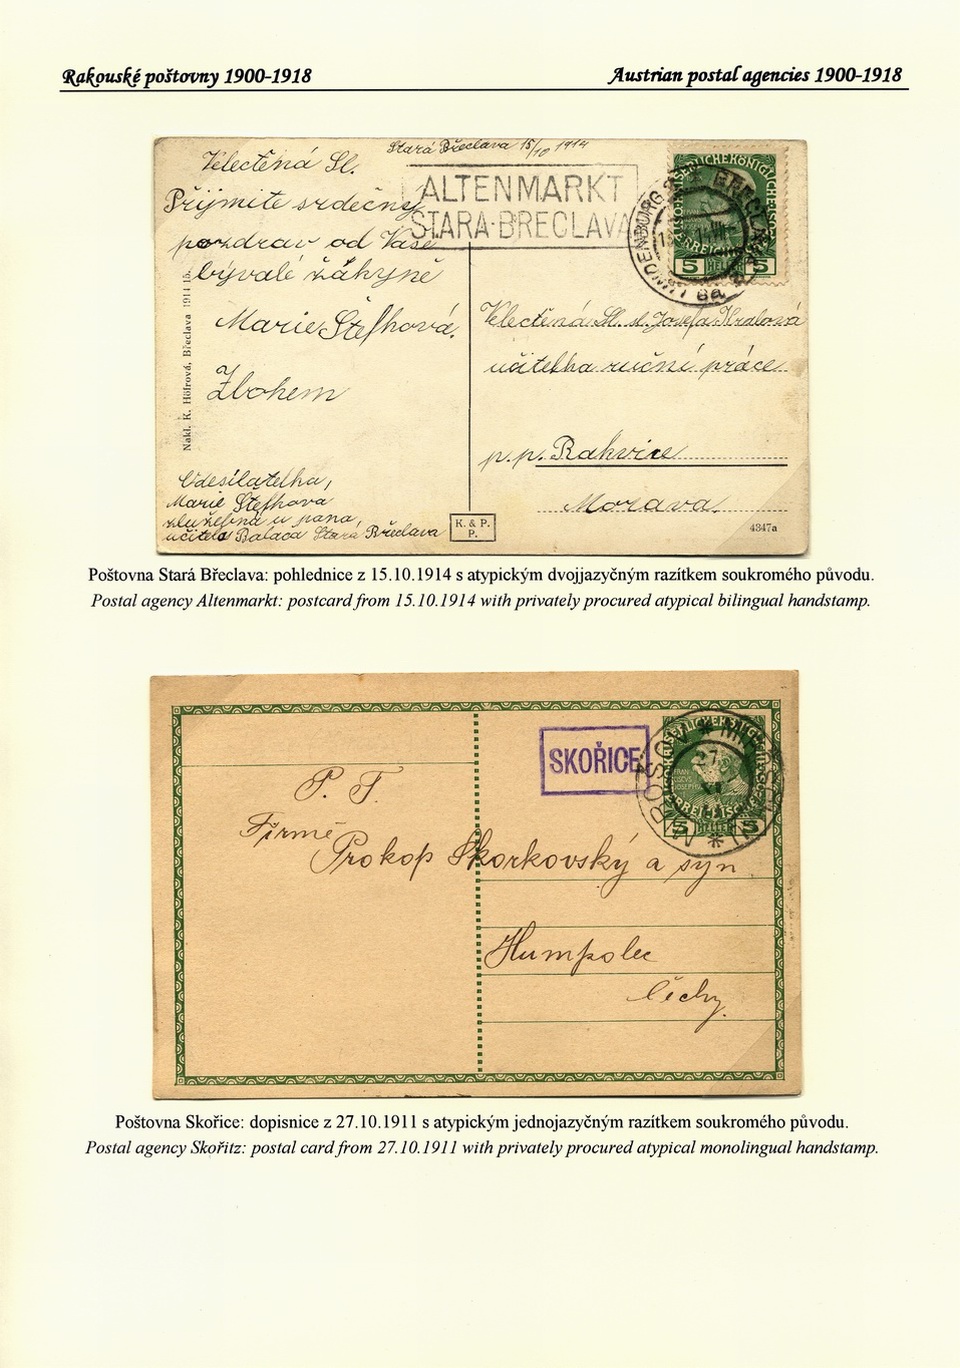 Rakouské poštovny 1900-1918
Austrian postal agencies 1900-1918
Stará Břeclava 15/10 1914
Velectěná Sl.
Přijmite srdečný
pozdrav od Vaše
bývalé žákyně
Marie Štefhová.
Zbohem
Odesílatelka,
Marie Štefhova
služebná u pana,
učitela Balača Stará Břeclava
Nakl. K. Höfrová, Břeclava 1914 15.
ALTENMARKT
STARA-BRECLAVA
5 HELLER 5
Velectěná Sl. sl. Josefa Kralová
učitelka ruční práce
p.p. Rakvice
Morava
K. & P.
P.
4347a
Poštovna Stará Břeclava: pohlednice z 15.10.1914 s atypickým dvojjazyčným razítkem soukromého původu.
Postal agency Altenmarkt: postcard from 15.10.1914 with privately procured atypical bilingual handstamp.
SKOŘICE
5 HELLER 5
P. T.
Firmě
Prokop Skorkovský a syn
Humpolec
Čechy.
Poštovna Skořice: dopisnice z 27.10.1911 s atypickým jednojazyčným razítkem soukromého původu.
Postal agency Skořitz: postal card from 27.10.1911 with privately procured atypical monolingual handstamp.